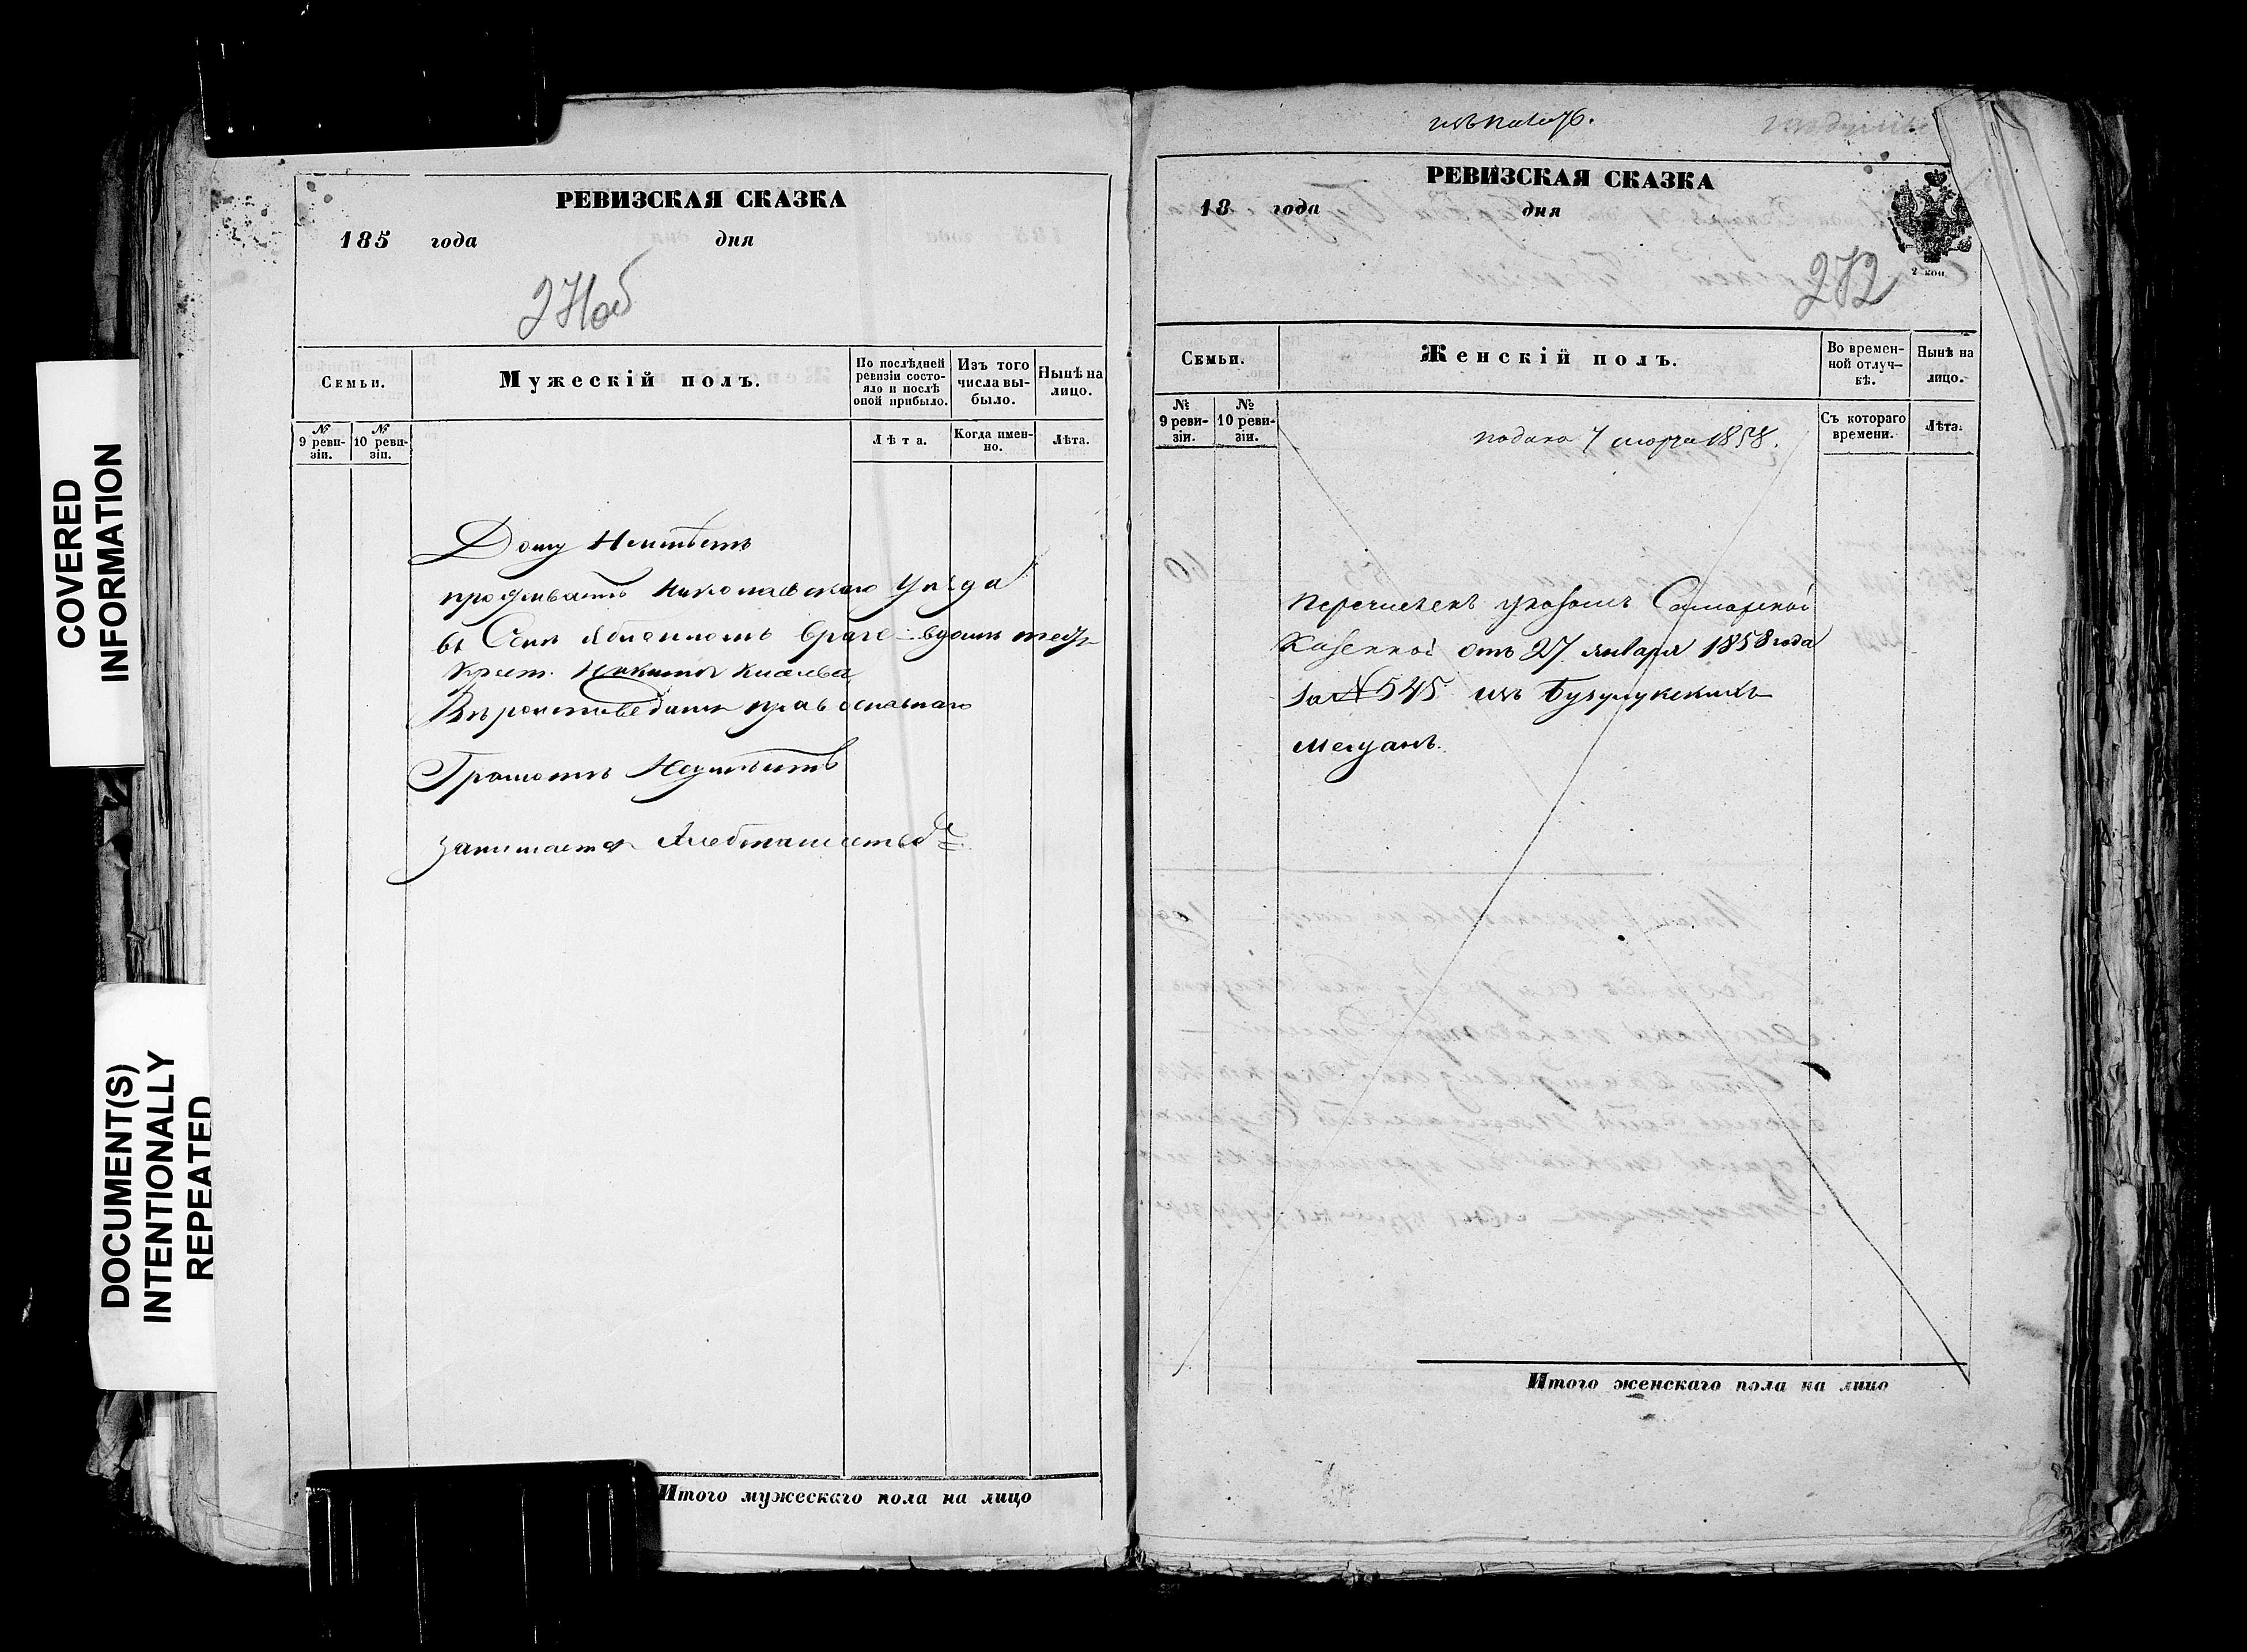 COVERED
INFORMATION
DOCUMENT(S)
INTENTIONALLY
REPEATED
РЕВИЗСКАЯ СКАЗКА
185 года дня
271об
Семьи.
Мужескій полъ.
По послѣдней ревизіи состояло и послѣ оной прибыло.
Изъ того числа выбыло.
Нынѣ на лицо.
№ 9 ревизіи.
№ 10 ревизіи.
Лѣта.
Когда именно.
Лѣта.
Дому Неимѣетъ
проживаетъ Николаевскаго Уѣзда
въ Селѣ Яблонномъ Врагѣ вдомѣ
крест. Никиты
Вѣроисповеданія православнаго
Грамотѣ Неумѣитъ
занимается Хлебопашеством
Итого мужескаго пола на лицо
РЕВИЗСКАЯ СКАЗКА
18 года дня
2 коп.
272
Семьи.
Женскій полъ.
Во временной отлучкѣ.
Нынѣ на лицо.
№ 9 ревизіи.
№ 10 ревизіи.
Съ котораго времени.
Лѣта.
подана 7 марта 1858.
перечисленъ указомъ Самарской
Казенной отъ 27 января 1858 года
за № 545 изъ Бузулукскихъ
мещанъ.
Итого женскаго пола на лицо